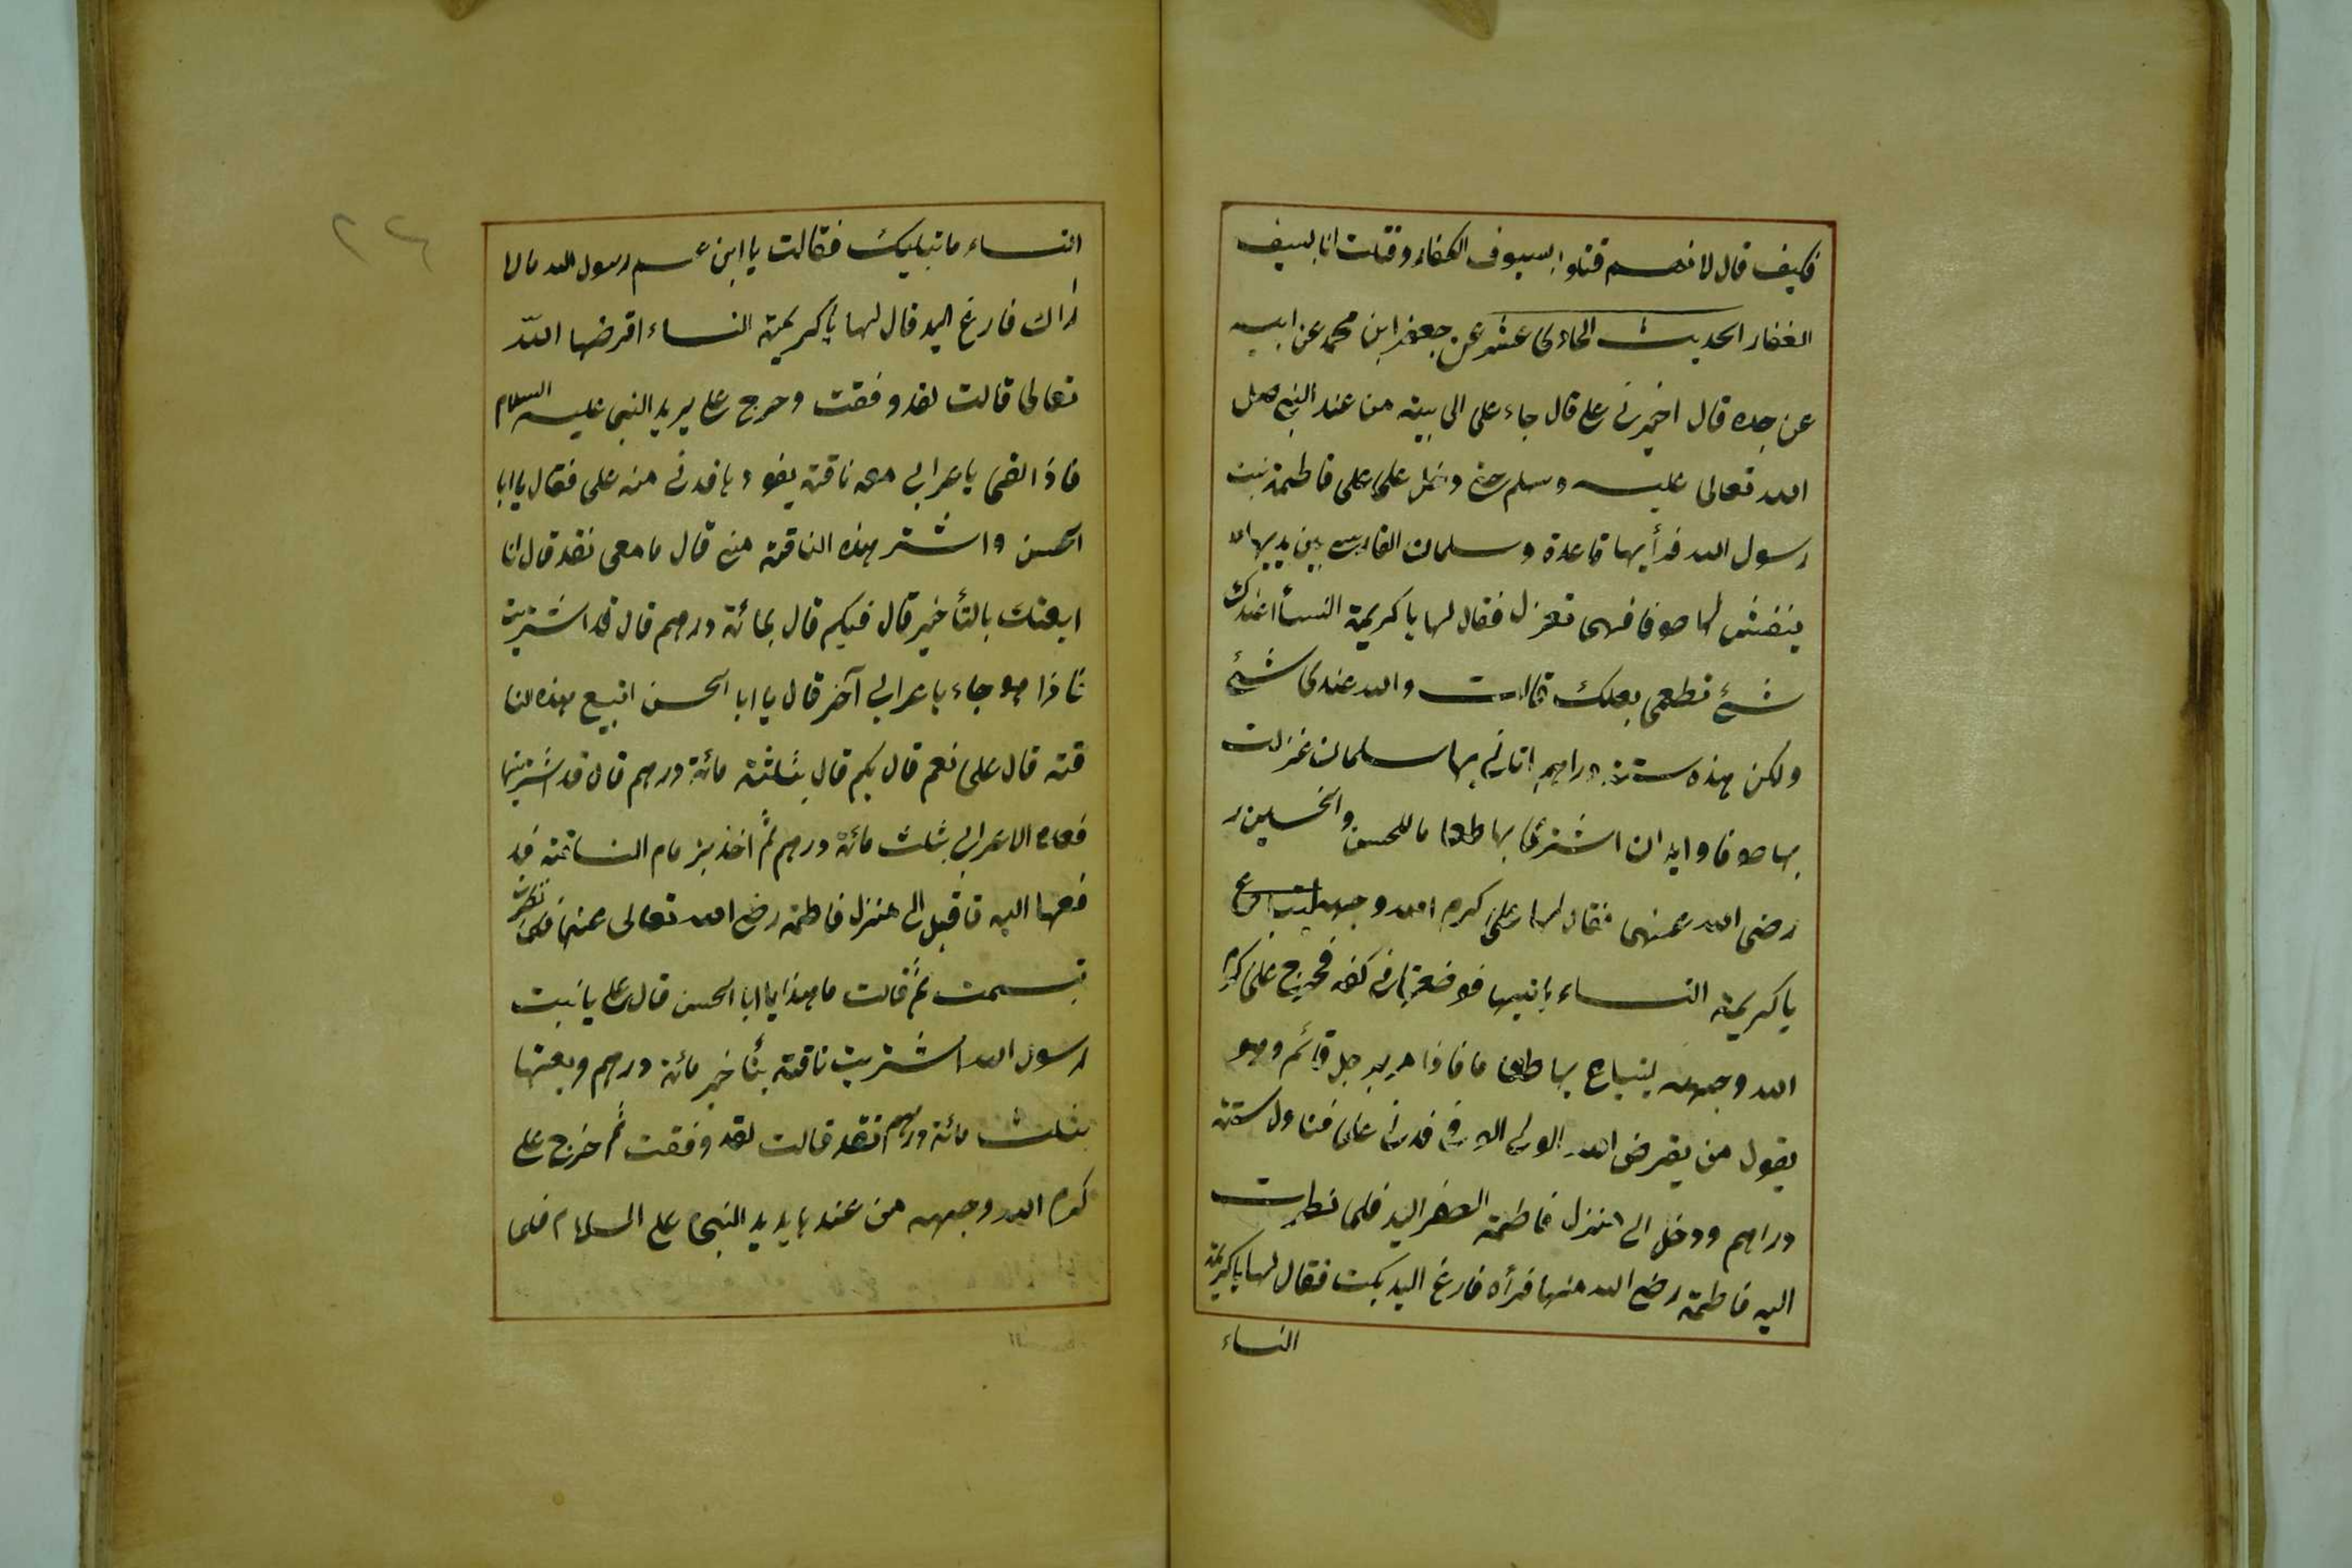 فكيف قال لانهم قتلوا بسيوف الكفار وقتلت انا بسيف
الغفار الحديث الحادى عشر عن جعفر ابن محمد عن ابيه
عن جده قال اخبرنى على قال جاء على الى بيته من عند النبى صل
الله تعالى عليه وسلم حتى دخل على على فاطمة بنت
رسول الله فرأيها قاعدة وسلمان الفارسى بين يديها
ينفش لها صوفا فهى تغزل فقال لها يا كريمة النسأ اعندك
شئ تطعمى بعلك قالت والله عندى شئ
ولكن هذه ستة دراهم اتانى بها سلمان غزلت
بها صوفا وايه ان اشترى بها طعا ما للحسن والحسين ر
رضى الله عنهما فقال لها على كرم الله وجهه
يا كريمة النساء باتيها فوضعتها فى كفه فخرج على كرم
الله وجهه ليبتاع بها طعا ما فاذا هو برجل قائم وهو
يقول من يقرض الله الولى الوفى فدنى على فناول ستة
دراهم ودخل الى منزل فاطمة اليد فلما نظرت
اليه فاطمة رضى الله عنها فرأه فارغ اليد بكت فقال لها يا كريمة
النساء
٢٤
النساء ما تبليك فقالت يا ابن عم رسول الله ما لا
اراك فارغ اليد قال لها يا كريمة النساء اقرضها الله
تعالى قالت لقد وفقت وخرج على يريد النبى عليه السلام
فاذا لقى با عرابى معه ناقة يقود ها فدنى منه على فقال يا ابا
الحسن واشتر هذه الناقة منى قال ما معى نقد قال انا
ابعتك بالتأخير قال فبكم قال بمائة درهم قال قد اشتريت
فاذا هو جاء با عرابى آخر قال يا ابا الحسن اتبيع هذه لنا
قته قال على نعم قال بكم قال بثلثة مائة درهم قال قد اشتريتها
الاعرابى بثلث مائة درهم ثم اخذ بزمام الناقة فد
فعها اليه فاقبل الى منزل فاطمة رضى الله تعالى عنها فلما نظرت
تبسمت ثم قالت ما هذا يا ابا الحسن قال على يا بنت
رسول الله اشتريت ناقة بتأخير مائة درهم وبعتها
بثلث مائة درهم نقد قالت لقد وفقت ثم خرج على
كرم الله وجهه من عند ها يريد النبى م على السلام فلما